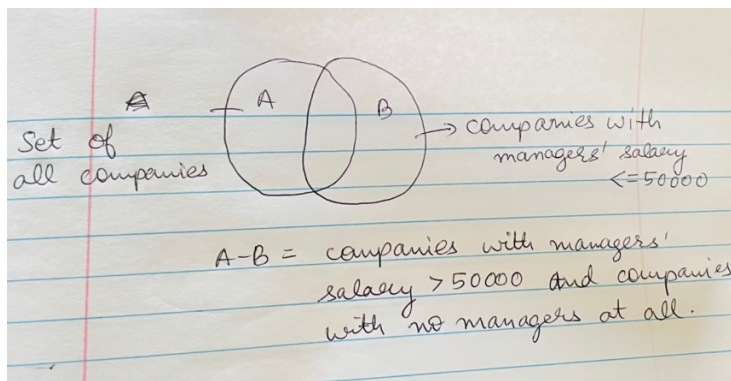 A
B
Set of
all companies
→ companies with
managers' salary
<=50000
A-B = companies with managers'
salary > 50000 and companies
with no managers at all.